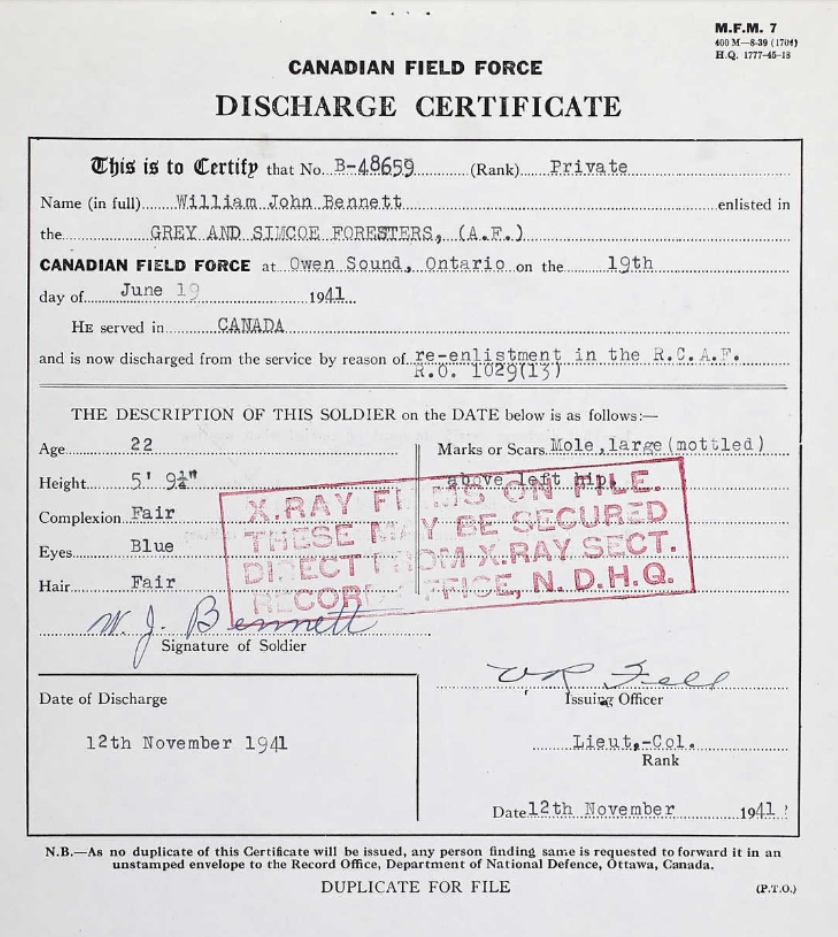 M.F.M. 7
400 M—8-39 (1704)
H.Q. 1777-45-18
CANADIAN FIELD FORCE
DISCHARGE CERTIFICATE
This is to Certify that No. B-48659 (Rank) Private
Name (in full) William John Bennett enlisted in
the GREY AND SIMCOE FORESTERS, (A.F.)
CANADIAN FIELD FORCE at Owen Sound, Ontario on the 19th
day of June 19 1941
HE served in CANADA
and is now discharged from the service by reason of re-enlistment in the R.C.A.F.
R.O. 1029(13)
THE DESCRIPTION OF THIS SOLDIER on the DATE below is as follows:—
Age 22
Height 5' 9½"
Complexion Fair
Eyes Blue
Hair Fair
Marks or Scars Mole, large (mottled)
above left hip.
X.RAY FILMS ON FILE.
THESE MAY BE SECURED
DIRECT FROM X.RAY SECT.
RECORD OFFICE, N.D.H.Q.
W. J. Bennett
Signature of Soldier
Fell
Issuing Officer
Date of Discharge
12th November 1941
Lieut.-Col.
Rank
Date 12th November 1941
N.B.—As no duplicate of this Certificate will be issued, any person finding same is requested to forward it in an
unstamped envelope to the Record Office, Department of National Defence, Ottawa, Canada.
DUPLICATE FOR FILE
(P.T.O.)